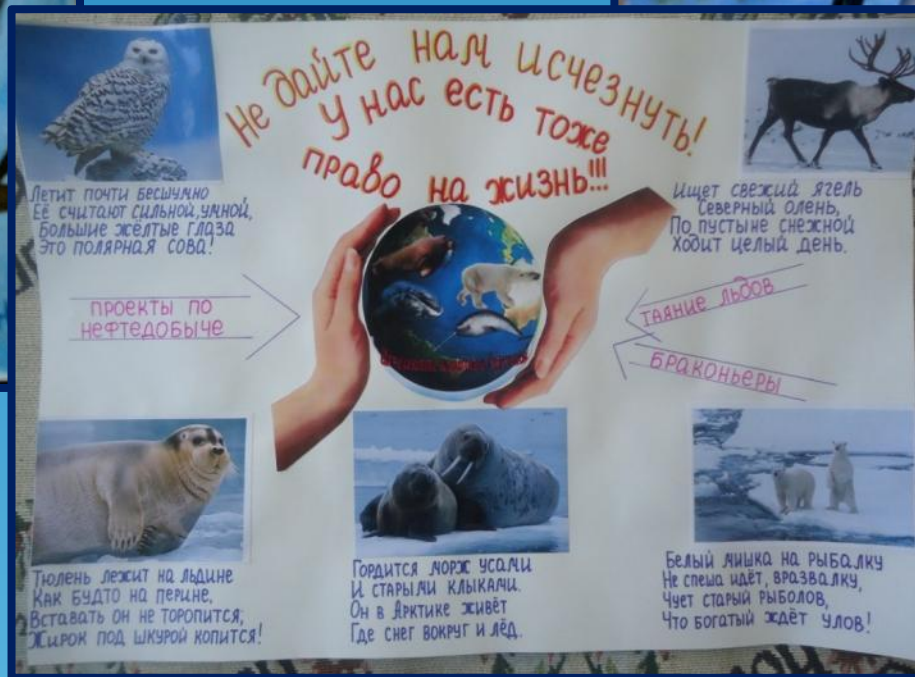 Не дайте нам исчезнуть!
У нас есть тоже
право на жизнь!!!
Летит почти бесшумно
Её считают сильной, умной,
Большие жёлтые глаза
Это полярная сова!
Ищет свежий ягель
Северный олень,
По пустыне снежной
Ходит целый день.
ПРОЕКТЫ ПО
НЕФТЕДОБЫЧЕ
ТАЯНИЕ ЛЬДОВ
БРАКОНЬЕРЫ
Тюлень лежит на льдине
Как будто на перине,
Вставать он не торопится,
Жирок под шкурой копится!
Гордится морж усами
И старыми клыками.
Он в Арктике живёт
Где снег вокруг и лёд.
Белый мишка на рыбалку
Не спеша идёт, вразвалку,
Чует старый рыболов,
Что богатый ждёт улов!